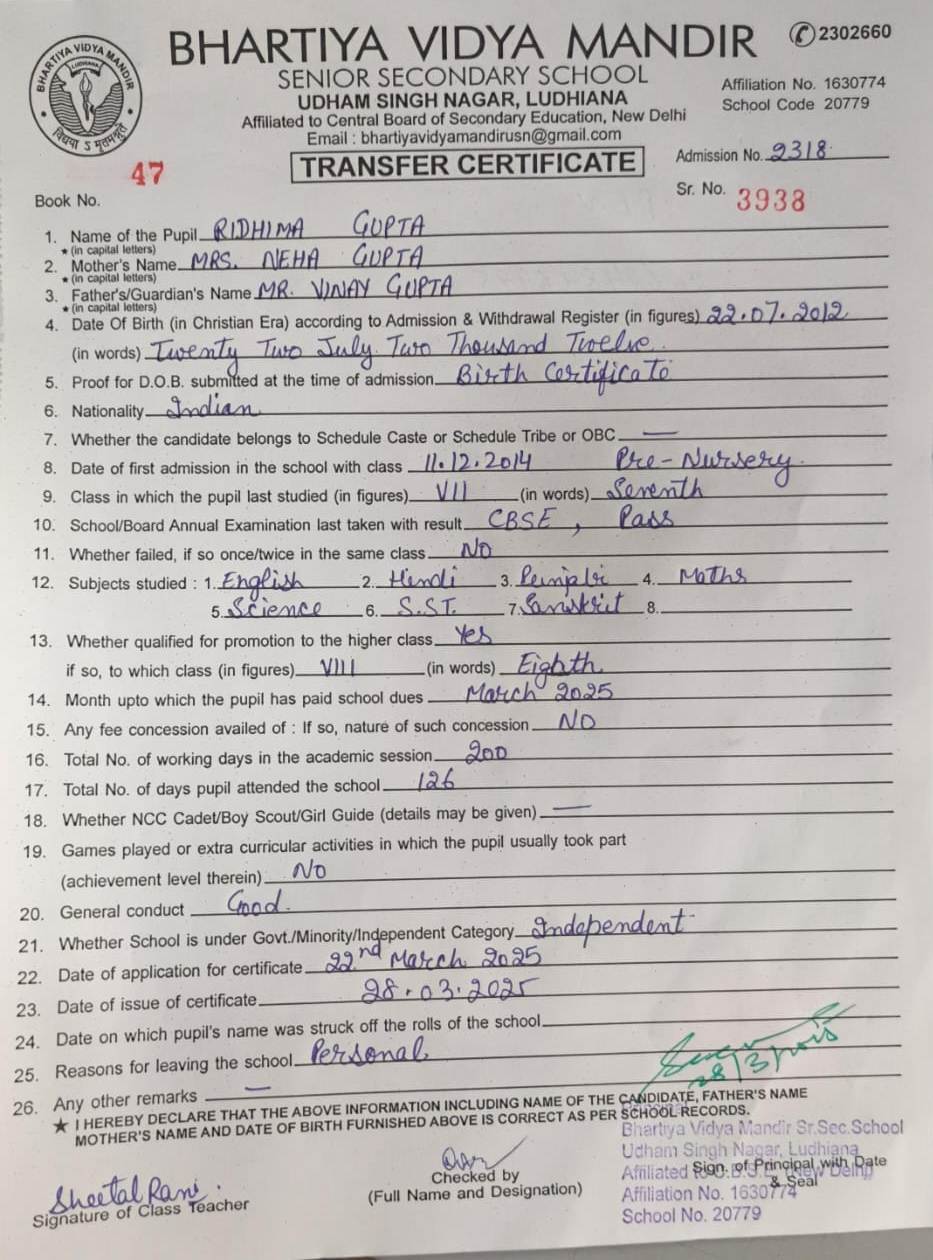 BHARTIYA VIDYA MANDIR
LUDHIANA
विद्यया ऽ मृतमश्नुते
BHARTIYA VIDYA MANDIR
✆2302660
SENIOR SECONDARY SCHOOL
UDHAM SINGH NAGAR, LUDHIANA
Affiliated to Central Board of Secondary Education, New Delhi
Email : bhartiyavidyamandirusn@gmail.com
Affiliation No. 1630774
School Code 20779
TRANSFER CERTIFICATE
Admission No. 2318
Book No. 47
Sr. No. 3938
1. Name of the Pupil RIDHIMA GUPTA
*(in capital letters)
2. Mother's Name MRS. NEHA GUPTA
*(in capital letters)
3. Father's/Guardian's Name MR. VINAY GUPTA
*(in capital letters)
4. Date Of Birth (in Christian Era) according to Admission & Withdrawal Register (in figures) 22.07.2012
(in words) Twenty Two July Two Thousand Twelve
5. Proof for D.O.B. submitted at the time of admission Birth Certificate
6. Nationality Indian
7. Whether the candidate belongs to Schedule Caste or Schedule Tribe or OBC —
8. Date of first admission in the school with class 11.12.2014 Pre-Nursery.
9. Class in which the pupil last studied (in figures) VII (in words) Seventh
10. School/Board Annual Examination last taken with result CBSE, Pass
11. Whether failed, if so once/twice in the same class NO
12. Subjects studied : 1. English 2. Hindi 3. Punjabi 4. Maths
5. Science 6. S.ST. 7. Sanskrit 8.
13. Whether qualified for promotion to the higher class Yes
if so, to which class (in figures) VIII (in words) Eighth
14. Month upto which the pupil has paid school dues March 2025
15. Any fee concession availed of : If so, nature of such concession NO
16. Total No. of working days in the academic session 200
17. Total No. of days pupil attended the school 126
18. Whether NCC Cadet/Boy Scout/Girl Guide (details may be given) —
19. Games played or extra curricular activities in which the pupil usually took part
(achievement level therein) No
20. General conduct Good.
21. Whether School is under Govt./Minority/Independent Category Independent
22. Date of application for certificate 22nd March 2025
23. Date of issue of certificate 28.03.2025
24. Date on which pupil's name was struck off the rolls of the school
25. Reasons for leaving the school Personal
28/3/2025
26. Any other remarks —
★ I HEREBY DECLARE THAT THE ABOVE INFORMATION INCLUDING NAME OF THE CANDIDATE, FATHER'S NAME
MOTHER'S NAME AND DATE OF BIRTH FURNISHED ABOVE IS CORRECT AS PER SCHOOL RECORDS.
Principal
Bhartiya Vidya Mandir Sr.Sec.School
Udham Singh Nagar, Ludhiana
Affiliated to C.B.S.E. (New Delhi)
Affiliation No. 1630774
School No. 20779
Sign. of Principal with Date
& Seal
Checked by
(Full Name and Designation)
Sheetal Rani.
Signature of Class Teacher